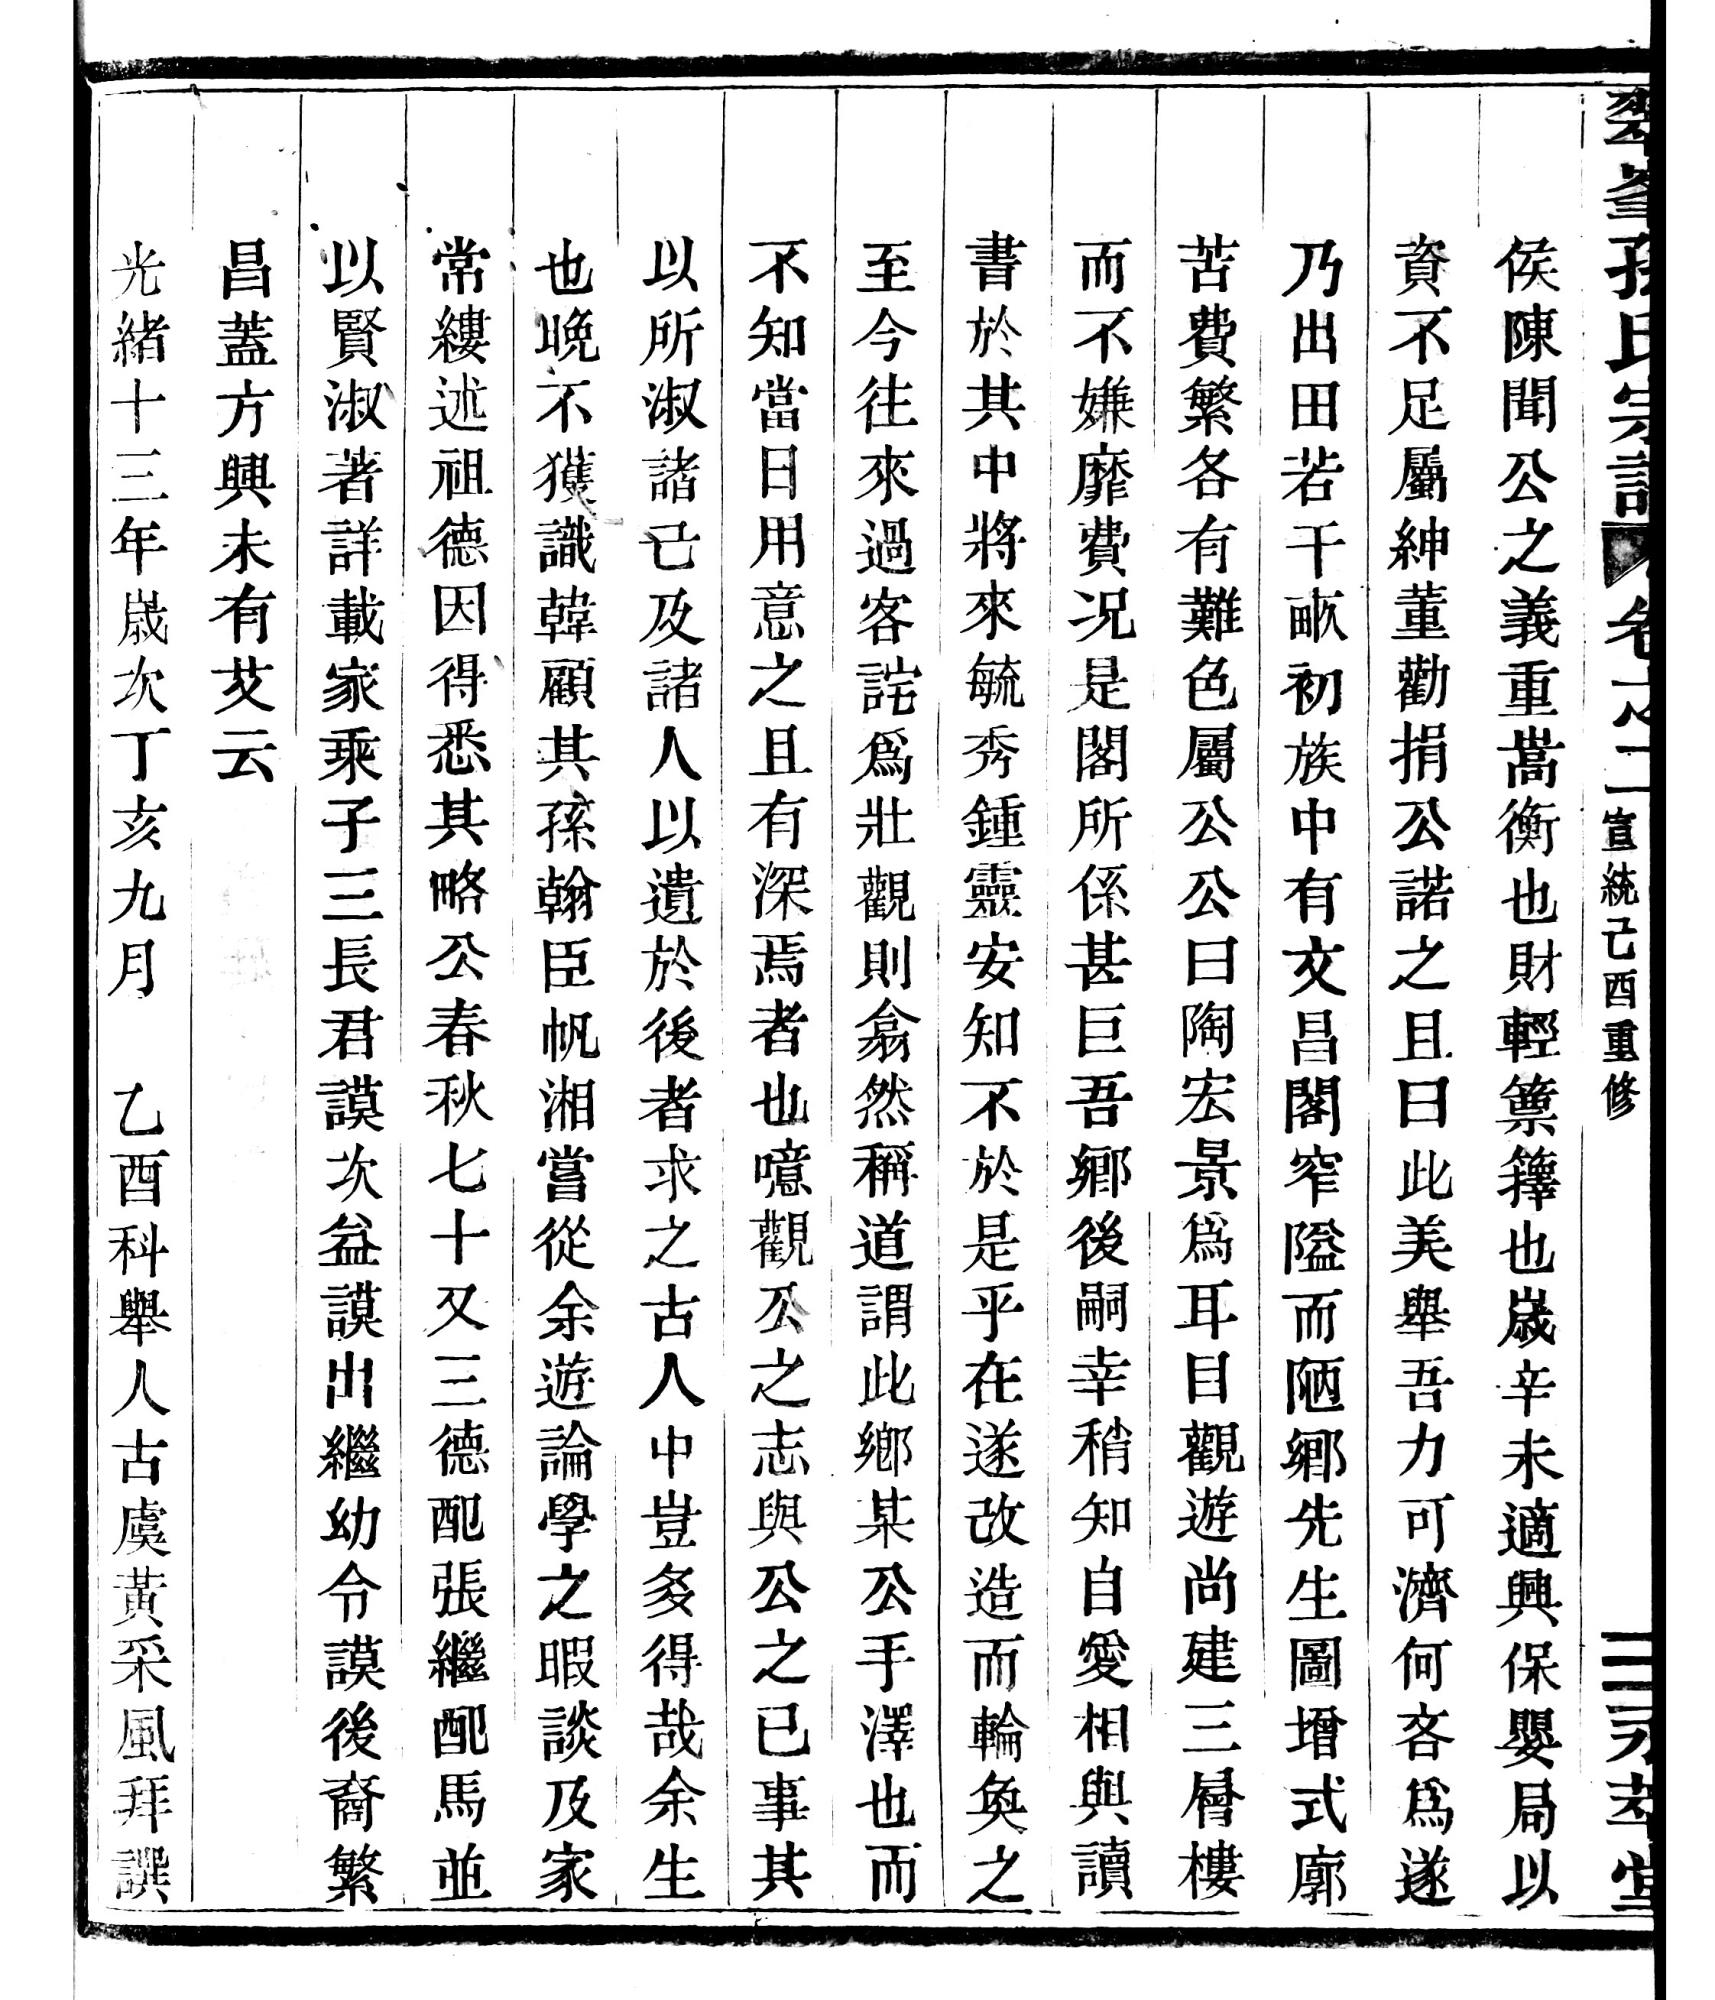 孫氏宗譜 卷之二 宣統己酉重修 三 永萃堂
侯陳聞公之義重嵩衡也財輕籅籜也歲辛未適興保嬰局以
資不足屬紳董勸捐公諾之且曰此美舉吾力可濟何吝為遂
乃出田若干畝初族中有文昌閣窄隘而陋鄉先生圖增式廓
苦費繁各有難色屬公公曰陶宏景爲耳目觀遊尚建三層樓
而不嫌靡費况是閣所係甚巨吾鄉後嗣幸稍知自愛相與讀
書於其中將來毓秀鍾靈安知不於是乎在遂改造而輪奐之
至今往來過客詫爲壯觀則翕然稱道謂此鄉某公手澤也而
不知當日用意之且有深焉者也噫觀公之志與公之已事其
以所淑諸己及諸人以遺於後者求之古人中豈多得哉余生
也晚不獲識韓顧其孫翰臣帆湘嘗從余遊論學之暇談及家
常縷述祖德因得悉其略公春秋七十又三德配張繼配馬並
以賢淑著詳載家乘子三長君謨次益謨出繼幼令謨後裔繁
昌蓋方興未有艾云
光緒十三年歲次丁亥九月 乙酉科舉人古虞黃采風拜譔